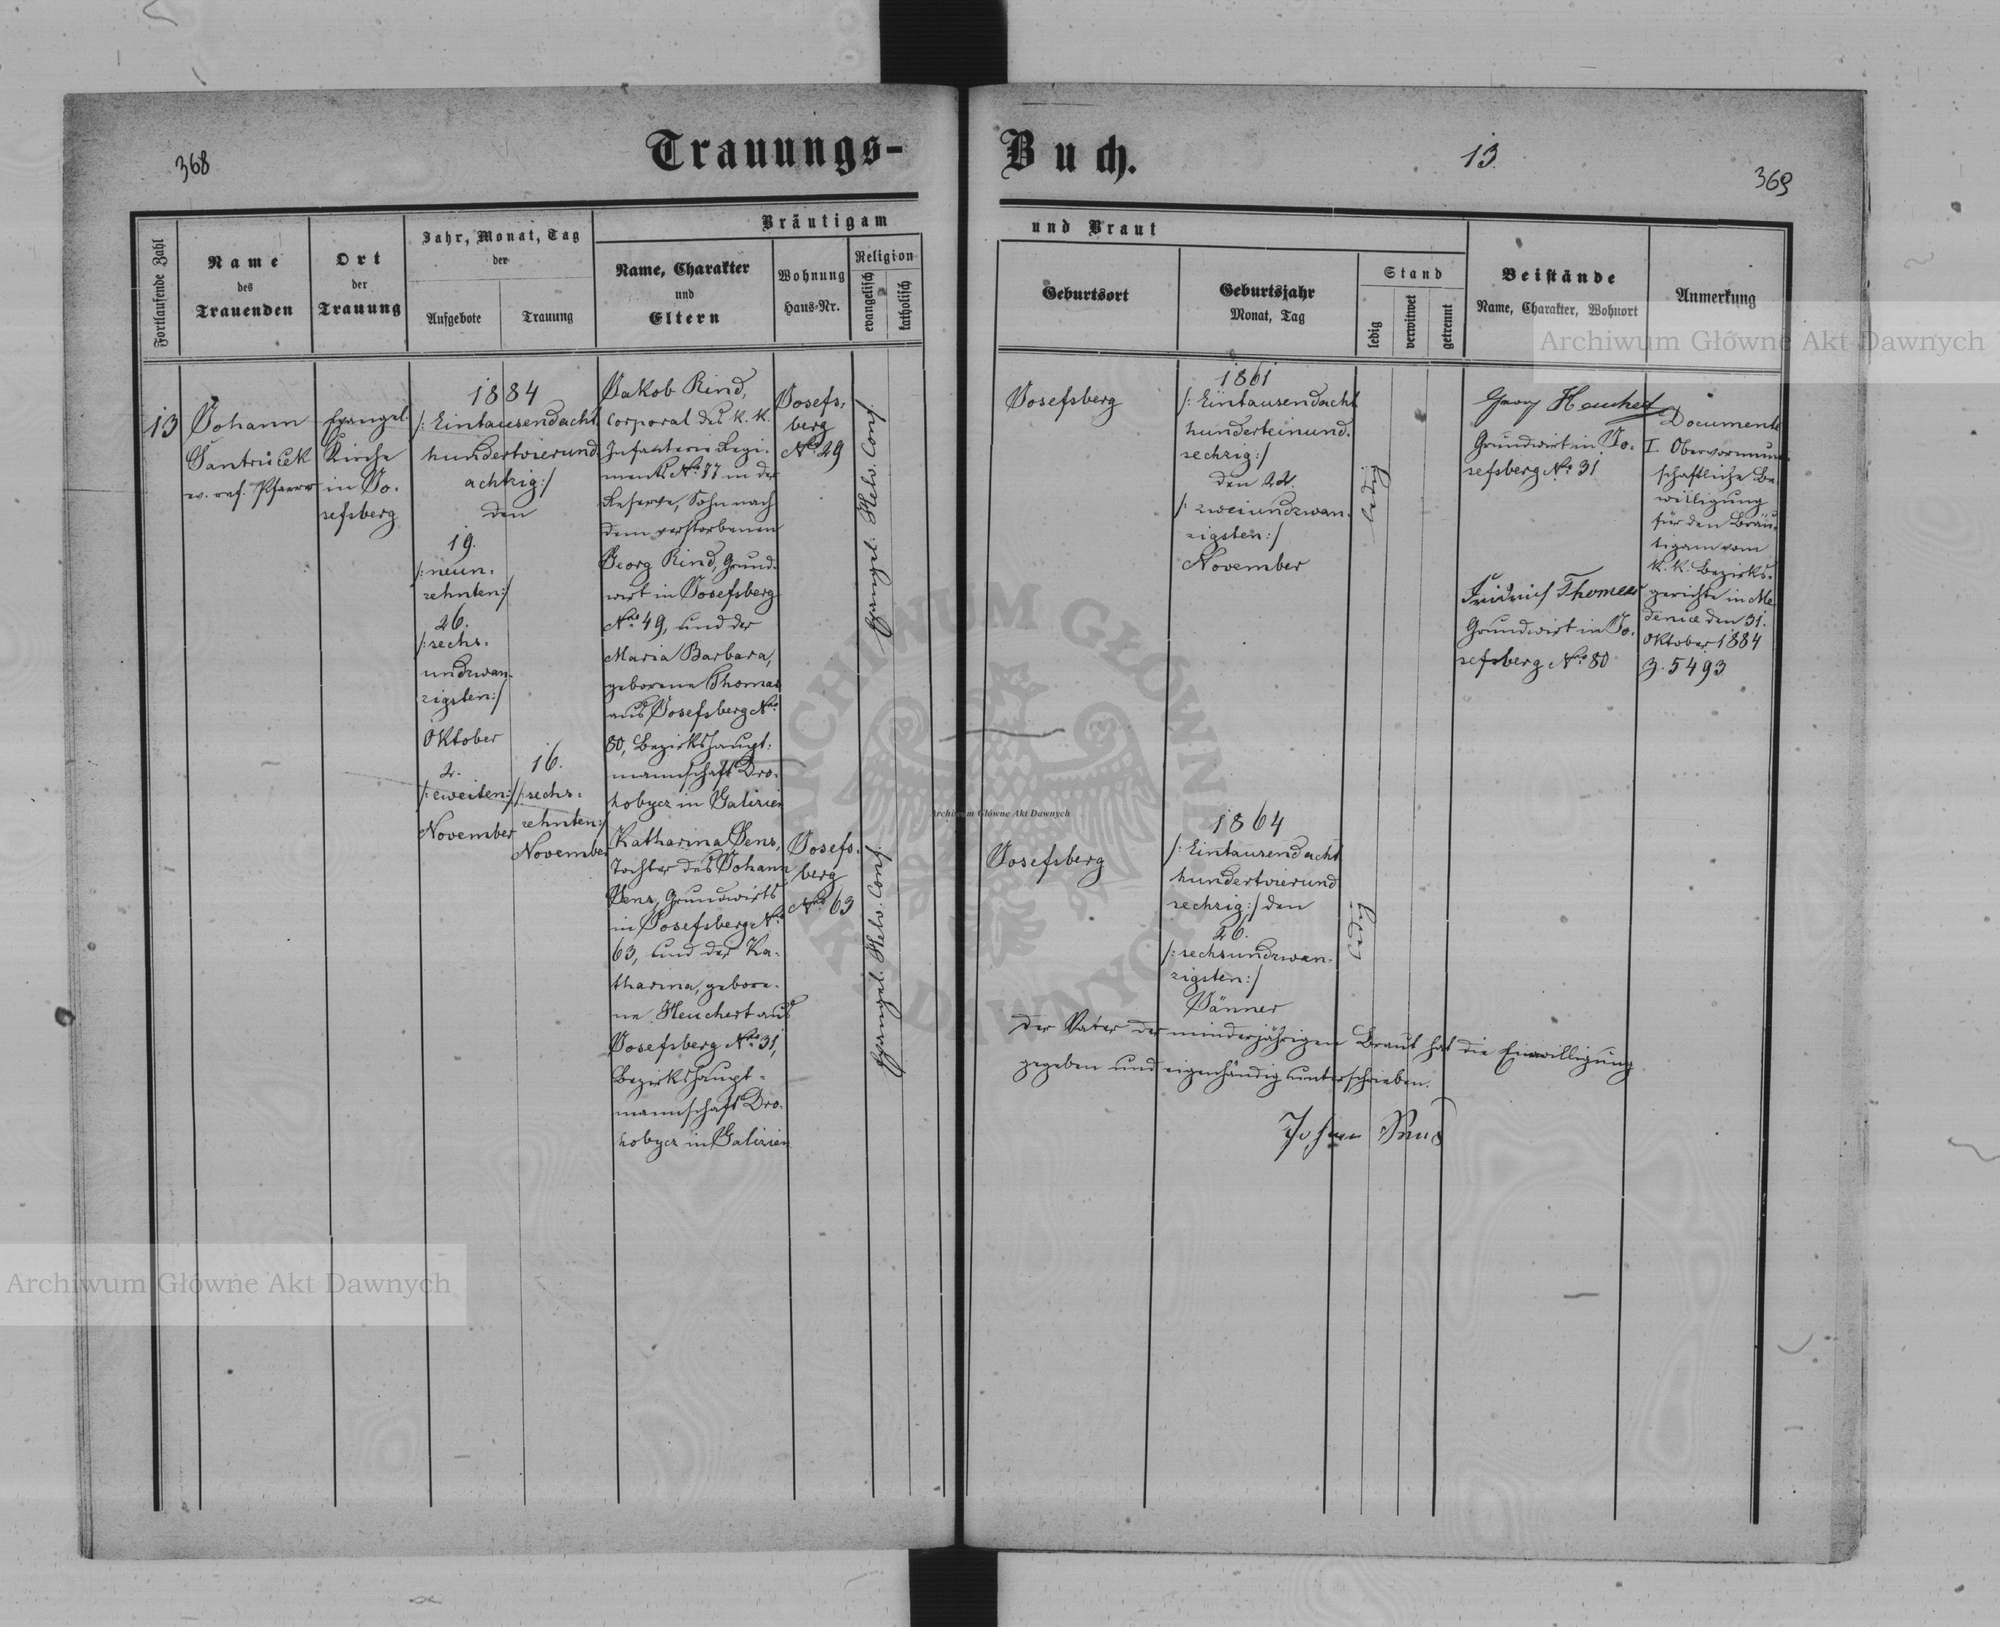 368
Trauungs-
Buch.
13.
369
Fortlaufende Zahl
Name
des
Trauenden
Ort
der
Trauung
Jahr, Monat, Tag
der
Aufgebote
Trauung
Bräutigam
Name, Charakter
und
Eltern
Wohnung
Haus-Nr.
Religion
evangelisch
katholisch
und Braut
Geburtsort
Geburtsjahr
Monat, Tag
Stand
ledig
verwitwet
getrennt
Beistände
Name, Charakter, Wohnort
Anmerkung
13
Johann
Jantrůcek
ev. ref. Pfarrer
Evangel.
Kirche
in Jo-
sefsberg
1884
/: Eintausendacht
hundertvierund
achtzig :/
den
19.
/: neun-
zehnten :/
26.
/: sechs-
undzwan-
zigsten :/
Oktober
2.
/: zweiten :/
November
16.
/: sechs-
zehnten :/
November
Jakob Rind,
Corporal des k. k.
Infanterie Regi-
ments No 77 in der
Reserve, Sohn nach
dem verstorbenen
Georg Rind, Grund-
wirt in Josefsberg
No 49, und der
Maria Barbara,
geborene Thomas
aus Josefsberg No
80, Bezirkshaupt-
mannschaft Dro-
hobycz in Galizien
Josefs-
berg
No 29
Evangel. Helv. Conf.
Katharina Senz,
Tochter des Johann
Senz, Grundwirts
in Josefsberg No
63, und der Ka-
tharina, gebore-
ne Heuchert aus
Josefsberg No 31,
Bezirkshaupt-
mannschaft Dro-
hobycz in Galizien
Josefs-
berg
No 63
Evangel. Helv. Conf.
Josefsberg
1861
/: Eintausendacht
hunderteinund-
sechzig :/
den 22.
/: zweiundzwan-
zigsten :/
November
ledig
Georg Heuchert
Grundwirt in Jo-
sefsberg No 31
Fridrich Thomas
Grundwirt in Jo-
sefsberg No 80
Documente
I. Obervormund-
schaftliche Be-
willigung
für den Bräu-
tigam vom
k. k. Bezirks-
gerichte in Me-
denice den 31.
Oktober 1884
Z. 5493
Josefsberg
1864
/: Eintausendacht
hundertvierund
sechzig :/ den
26.
/: sechsundzwan-
zigsten :/
Jänner
ledig
Der Vater der minderjährigen Braut hat die Einwilligung
gegeben und eigenhändig unterschrieben.
Johann
Archiwum Główne Akt Dawnych
Archiwum Główne Akt Dawnych
Archiwum Główne Akt Dawnych
ARCHIWUM GŁÓWNE
AKT DAWNYCH